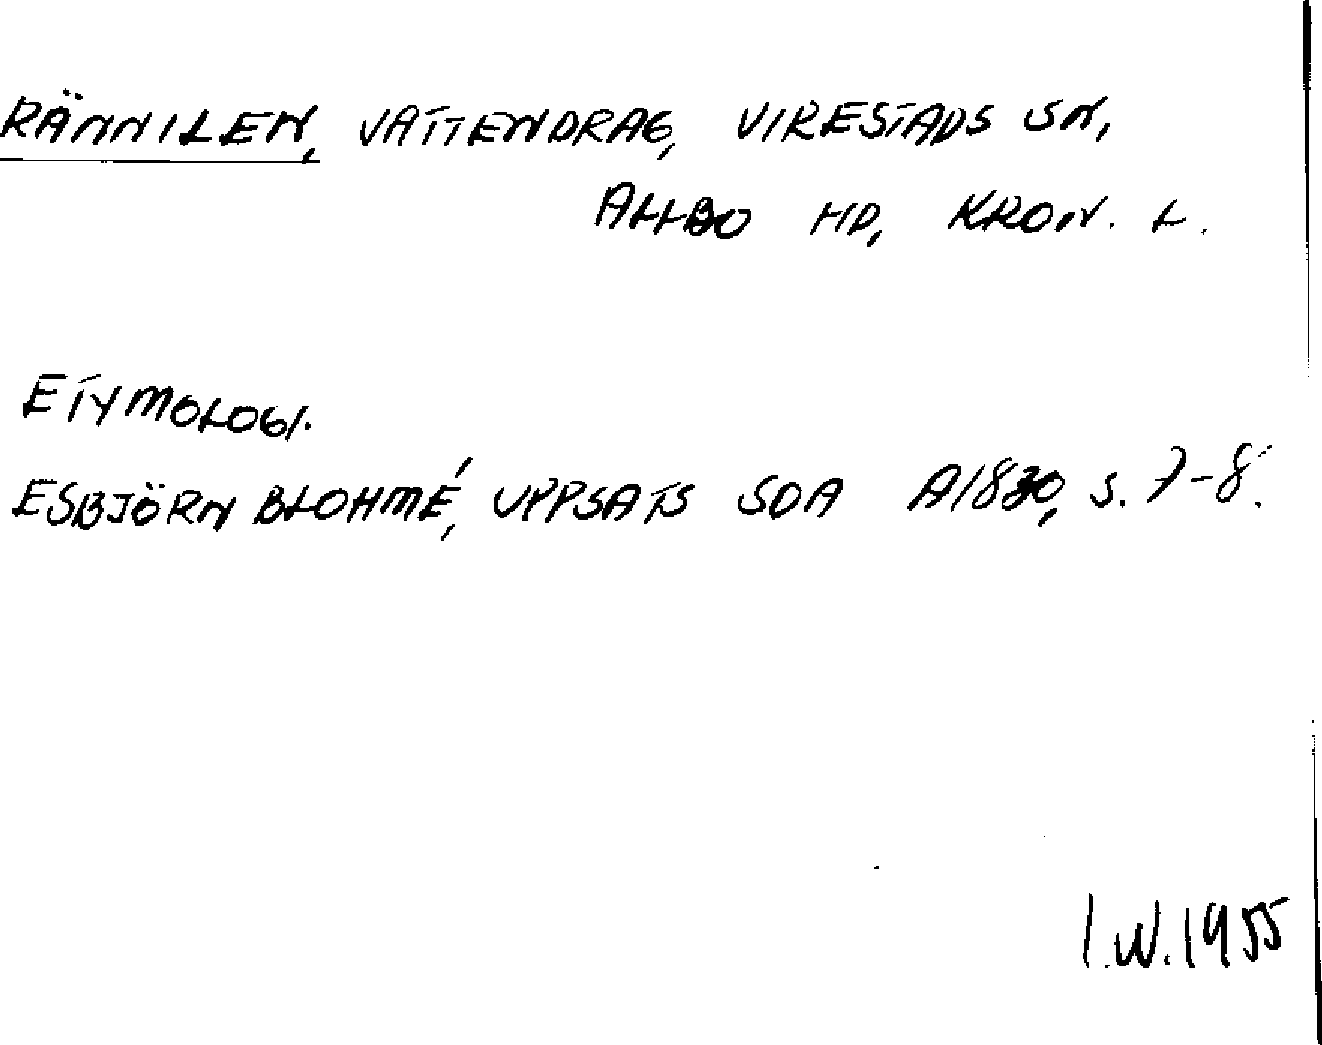 RÄNNILEN, VATTENDRAG, VIRESTADS SN,
ALLBO HD, KRON. L.
ETYMOLOGI.
ESBJÖRN BLOHMÉ, UPPSATS SOA A1830, S. 7-8.
I.W. 1955